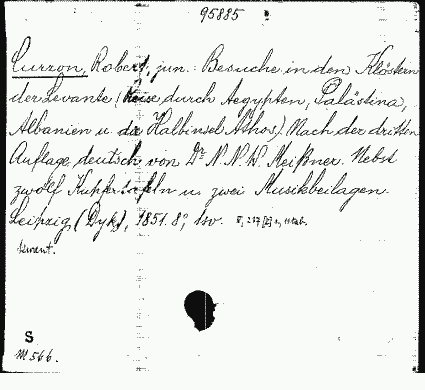 95885
Curzon, Robert, jun.: Besuche in den Klöstern
der Levante (Reise durch Aegypten, Palästina,
Albanien u. die Halbinsel Athos). Nach der dritten
Auflage deutsch von Dr N. N. W. Meißner. Nebst
zwölf Kupfertafeln u. zwei Musikbeilagen.
Leipzig (Dyk), 1851. 8°,
S
M 566.